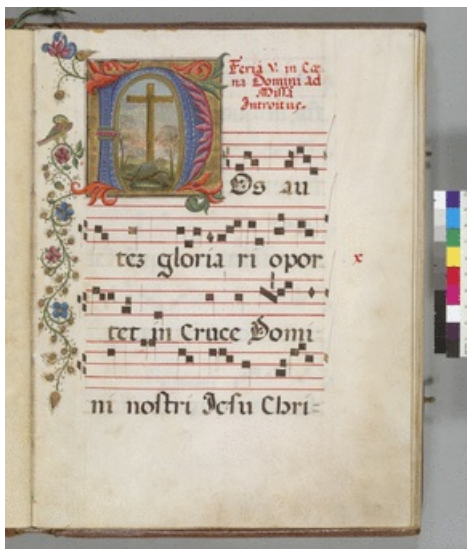 Feria V. in Cœ
na Domini ad
Missã
Introitus.
NOs au
tez gloria ri opor
x
tet in Cruce Domi
ni nostri Jesu Chri=